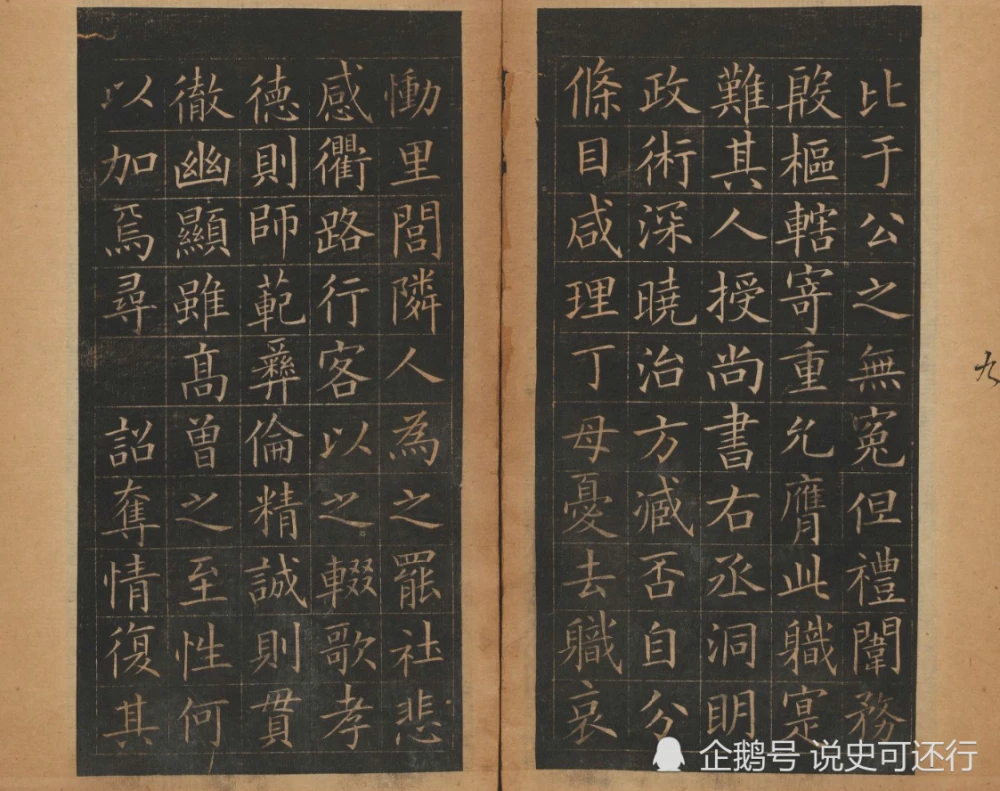 比于公之無寃但禮闈務
殷樞轄寄重允膺此職寔
難其人授尚書右丞洞明
政術深曉治方臧否自分
條目咸理丁母憂去職哀
慟里閭隣人為之罷社悲
感衢路行客以之輟歌孝
德則師範彝倫精誠則貫
徹幽顯雖高曾之至性何
以加焉尋詔奪情復其
九
企鹅号 说史可还行